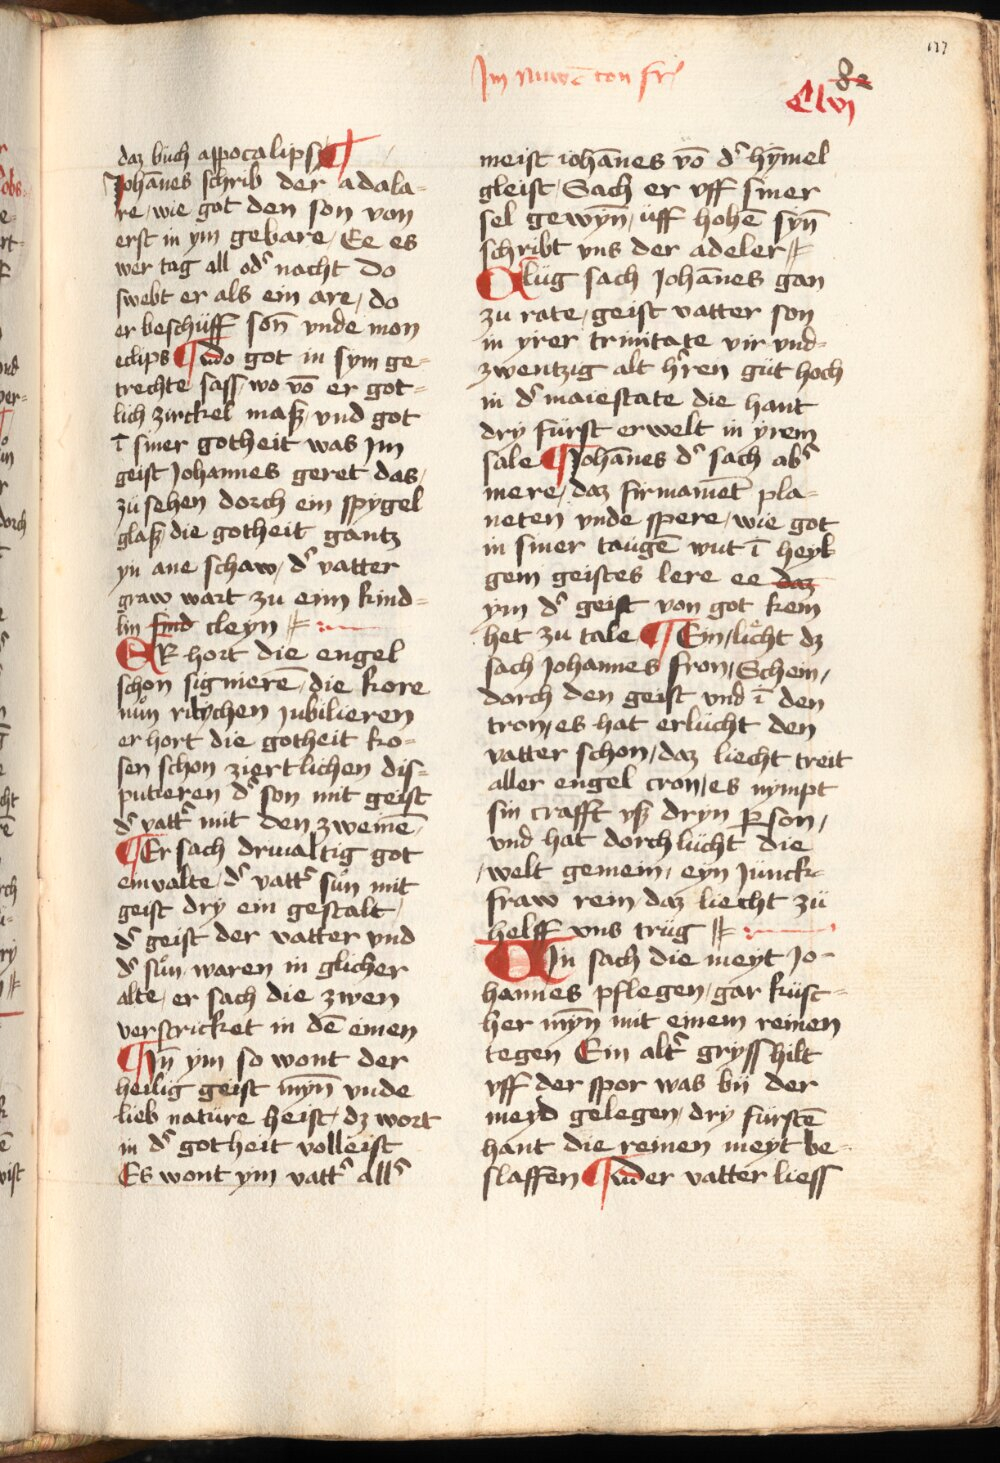 Im nuwē ton fr
117
82
Clvi
daz buch appocalips
Johānes schrib der adala-
re, wie got den son von
erst in ym gebare, Ee es
wer tag all od' nacht do
swebt er als ein are, do
er beschüff son̄ vnde mon
eclips Wo got in sym ge-
trechte sass, wo vō er got-
lich zirckel maß, vnd got
ī siner gotheit was Im
geist Johannes geret das,
zü sehen dorch ein spygel
glaß, die gotheit gantz
yn ane schaw, d' vatter
graw wart zu eim kind-
lin find cleyn
ER hort die engel
schon signierē, die kore
nuͦn rilychen Jubilieren
er hort die gotheit ko-
sen schon ziertlichen dis-
putieren d' son mit geist
d' vatt' mit den zweinē,
Er sach drualtig got
einvalte, d' vatt' suͦn mit
geist dry ein gestalt,
d' geist der vatter vnd
d' suͦn, waren in glicher
alte, er sach die zwen
verstricket in dē einen
In̄ ym so wont der
heilig geist myn̄ vnde
lieb natüre heist, dz wort
in d' gotheit volleist
Es wont ym vatt' all'
meist iohānes vō d' hȳmel
gleist, Sach er vff siner
sel gewyn̄, üff hohē syn̄
schribt vns der adeler
Clüg sach Johānes gan
zu rate, geist vatter son
in yrer trinitate vir vnd-
zwentzig alt h'ren güt hoch
in d' maiestate die hant
dry fürst erwelt in yrem
sale Johānes d' sach ab'
mere, daz firmamēt pla-
neten vnde spere, wie got
in siner taugē wut ī heyl-
gem geistes lere ee daz
ym d' geist von got kem
het zu tale Ein, licht dz
sach Johannes fron, Schein,
dorch den geist vnd ī den
tron, es hat erlücht den
vatter schon, daz liecht treit
aller engel cron, es nympt
sin crafft vß dryn ꝑson,
vnd hat dorch lücht die
welt gemein, eyn Jünck-
fraw rein daz liecht zü
helff vns trüg
In sach die meyt Jo-
hannes pflegen, gar küst-
her myn̄ mit einem reinen
tegen Ein alt' gryss hilt
vff der spor was bÿ der
meyd gelegen, dry fürstē
hant die reinen meyt be-
slaffen Wer vatter liess